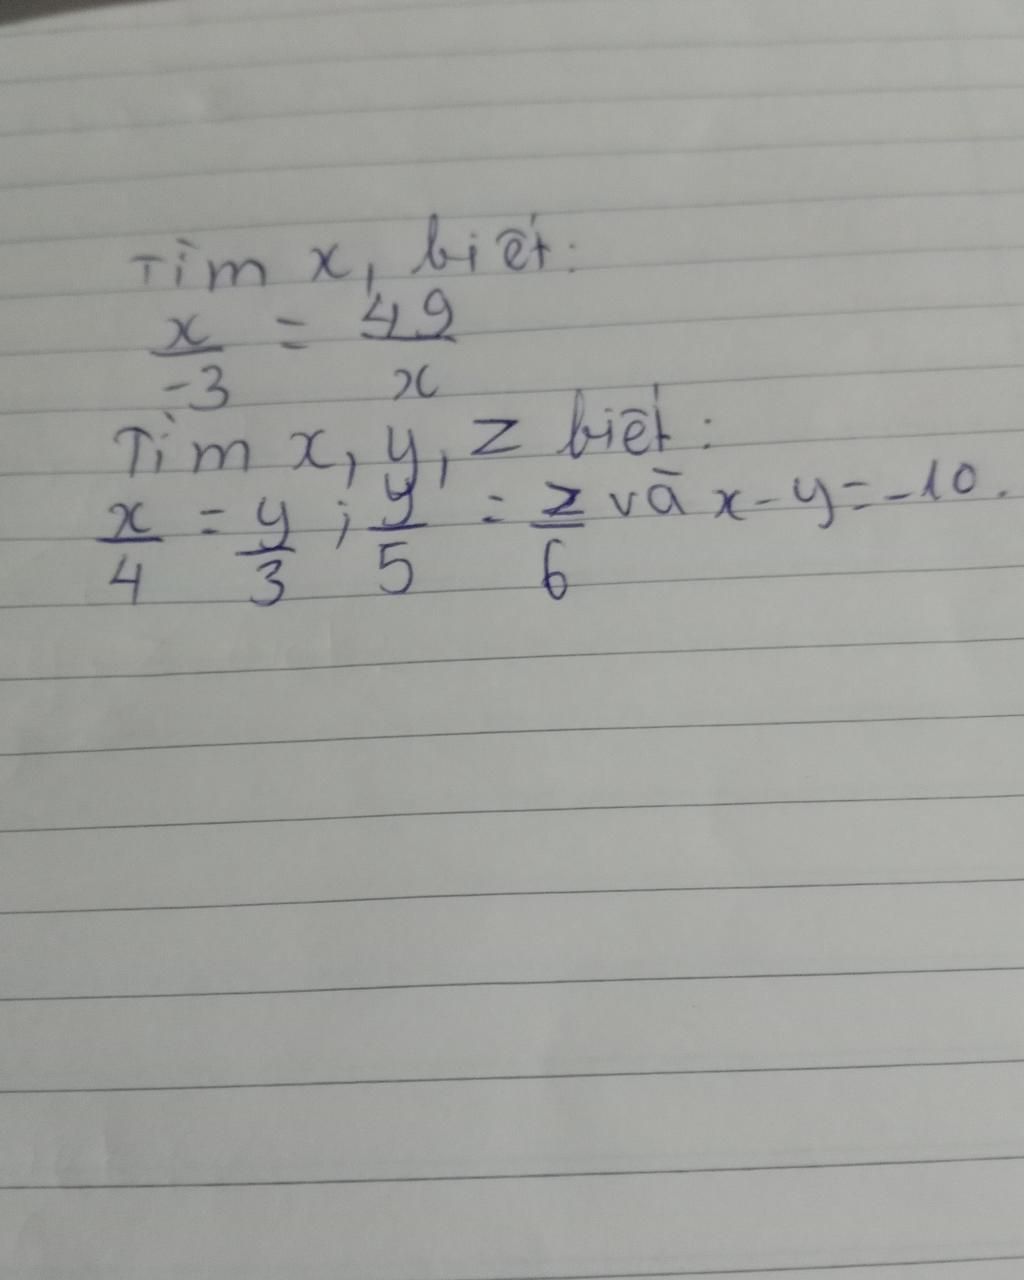 Tìm x, biết:
x/-3 = 49/x
Tìm x, y, z biết:
x/4 = y/3 ; y/5 = z/6 và x - y = -10.